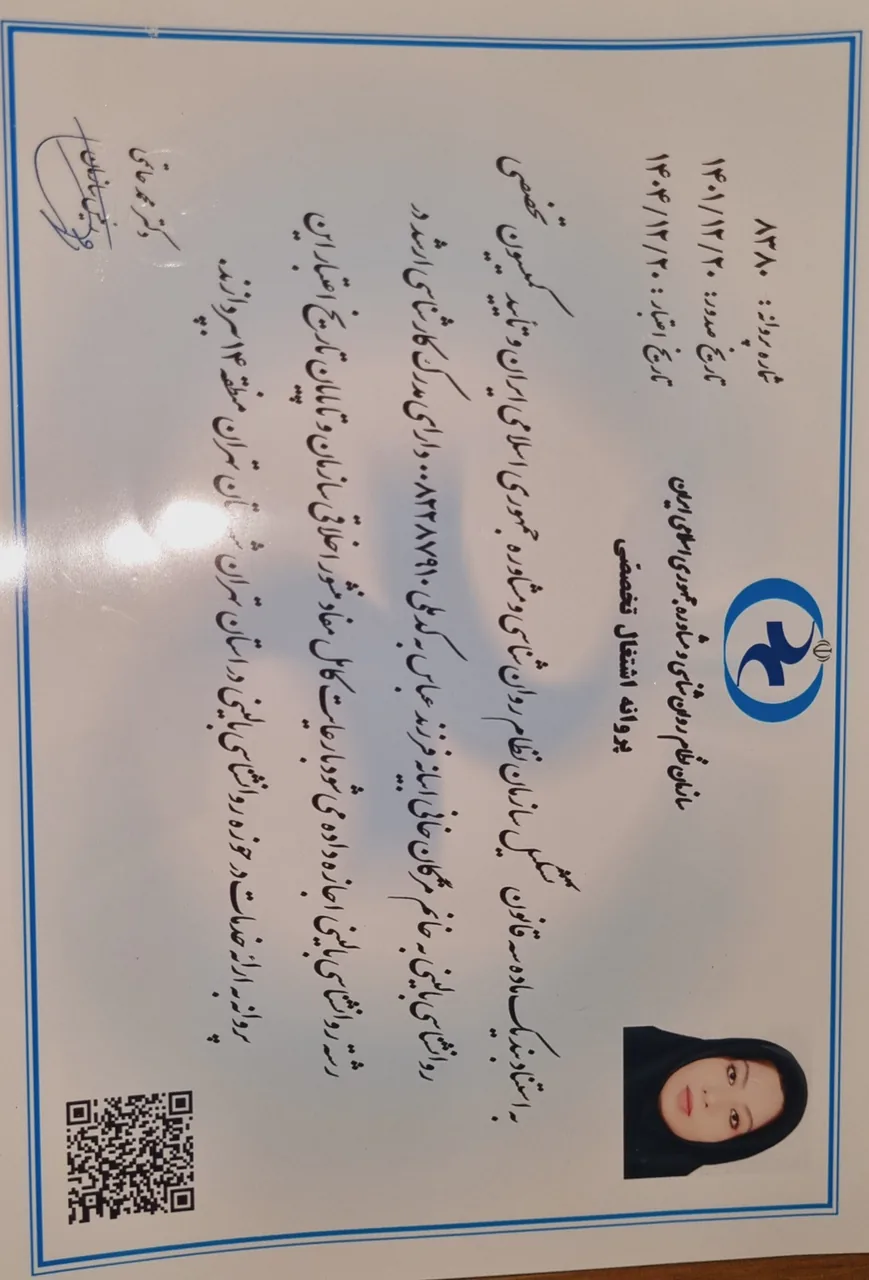 سازمان نظام روان شناسی و مشاوره جمهوری اسلامی ایران
پروانه اشتغال تخصصی
شماره پروانه: ۸۳۸۰
تاریخ صدور: ۱۴۰۱/۱۲/۲۰
تاریخ اعتبار: ۱۴۰۴/۱۲/۲۰
به استناد بند یک ماده سه قانون تشکیل سازمان نظام روان شناسی و مشاوره جمهوری اسلامی ایران و تأیید کمیسیون تخصصی
روانشناسی بالینی به خانم مژگان خانی اسپانه فرزند عباس به کد ملی ۰۰۸۳۲۸۷۹۱۰ دارای مدرک کارشناسی ارشد در
رشته روانشناسی بالینی اجازه داده می شود با رعایت کامل مفاد منشور اخلاقی سازمان و تا پایان تاریخ اعتبار این
پروانه به ارائه خدمات در حوزه روانشناسی بالینی در استان تهران شهرستان تهران منطقه ۱۴ بپردازند.
دکتر محمد حاتمی